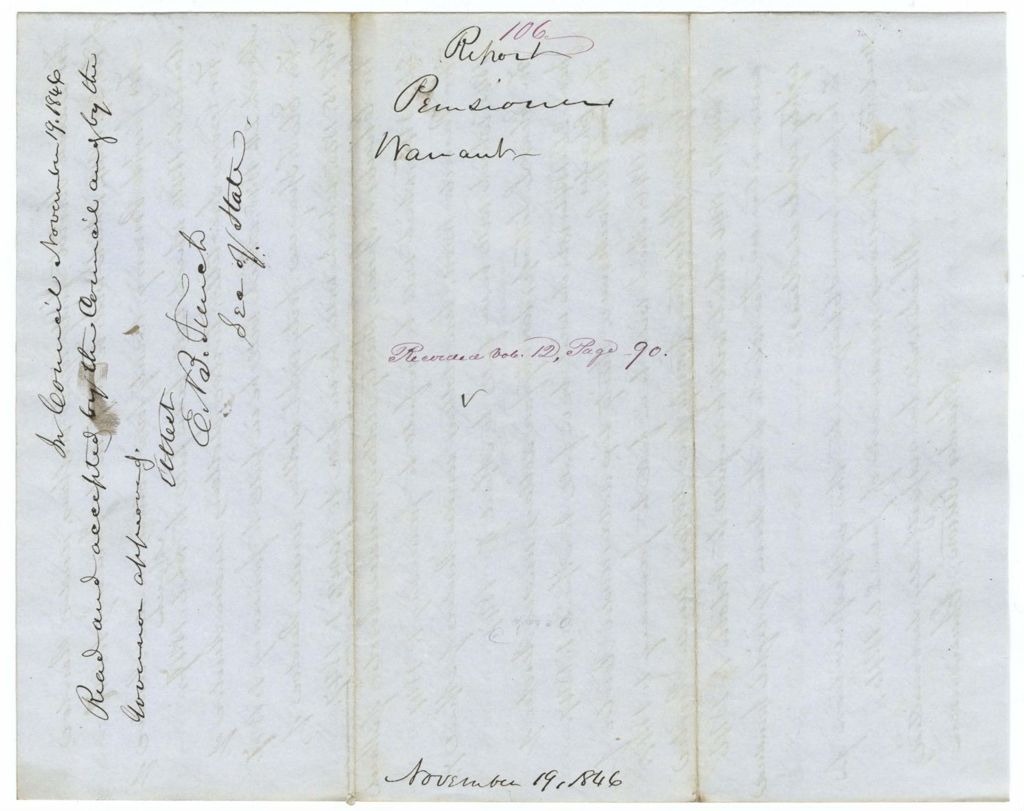 In Council November 19. 1846
Read and accepted by the Council and by the
Governor approving.
Attest
E. B. French
Sec of State.
106
Report
Pensioners
Warrant
Recorded Vol. 12, Page 90.
November 19, 1846